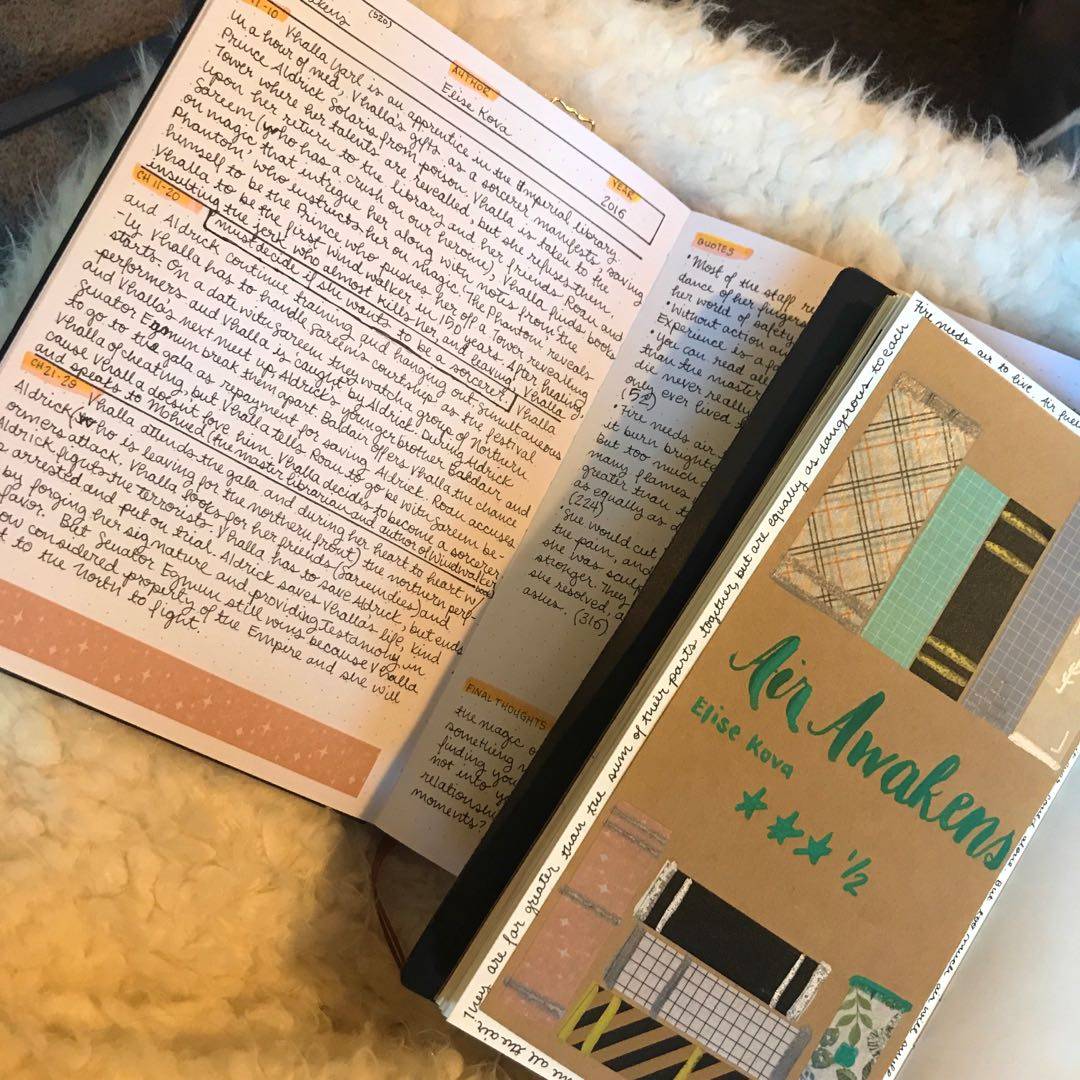 akens
(520)
AUTHOR
Elise Kova
YEAR
2016
1-10
Vhalla Yarl is an apprentice in the Imperial Library
In a hour of need, Vhalla's gifts as a sorcerer manifests, saving
Prince Aldrick Solaris from poison. Vhalla is taken to the
Tower where her talents are revealed, but she refuses them.
Upon her return to the library and her friends Roan and
Sareem (who has a crush on our heroine), Vhalla finds books
on magic that intrigue her along with notes from the
Phantom, who instructs her on magic. The Phantom reveals
himself to be the Prince who pushes her off a tower revealing
Vhalla to be the first windwalker in 150 years. After healing,
insulting the jerk who almost kills her, and leaving, Vhalla
must decide if she wants to be a sorcerer.
CH 11-20
Vhalla
and Aldrick continue training and hanging out. Simultaneous
-ly Vhalla has to handle Sareem's courtship as the festival
starts. On a date with Sareem they watch a group of Northern
performers and Vhalla is caught by Aldrick. During Aldrick
and Vhalla's next meet up, Aldrick's younger brother Baldair and
Senator Egmun break them apart. Baldair offers Vhalla the chance
to go to the gala as repayment for saving Aldrick. Roan accuses
Vhalla of cheating, but Vhalla tells Roan to go be with Sareem be-
cause Vhalla doesn't love him. Vhalla decides to become a sorcerer
and speaks to Mohned (the master librarian and author of Windwalker book)
CH 21-29
Vhalla attends the gala and during her heart to heart w/
Aldrick (who is leaving for the northern front) the northern perf-
ormers attack. Vhalla looks for her friends (Sareem dies) and
Aldrick fights the terrorists. Vhalla has to save Aldrick, but ends
arrested and put on trial. Aldrick saves Vhalla's life, kind
by forging her signature and providing testimony in
favor. But Senator Egmun still wins because Vhalla
ow considered property of the Empire and she will
t to the North to fight.
QUOTES
• Most of the staff re
dance of her fingers
her world of safety
• Without action an
Experience is a pa
• You can read all
than the master
die never really
only ever lived
(52)
• Fire needs air
it burn bright
But too much
many flames
greater than t
as equally as d
(224)
• She would cut
the pain, and
she was sculp
stronger. They
she resolved, a
ashes. (316)
FINAL THOUGHTS
the magic o
something n
finding you
not into y
relationshi
moments?
Fire needs air to live. Air fuel
They are far greater than the sum of their parts together, but are equally as dangerous to each
But too much air will snuff
me all the air,
Air Awakens
Elise Kova
★★★ 1/2